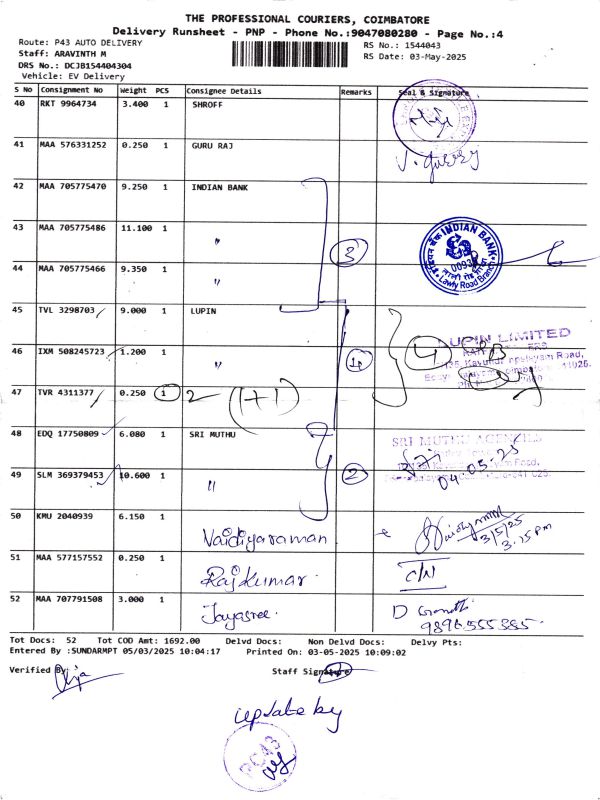 THE PROFESSIONAL COURIERS, COIMBATORE
Delivery Runsheet - PNP - Phone No.:9047080280 - Page No.:4
Route: P43 AUTO DELIVERY
Staff: ARAVINTH M
DRS No.: DCJB154404304
Vehicle: EV Delivery
RS No.: 1544043
RS Date: 03-May-2025
S No Consignment No Weight PCS Consignee Details Remarks Seal & Signature
40 RKT 9964734 3.400 1 SHROFF
41 MAA 576331252 0.250 1 GURU RAJ
42 MAA 705775470 9.250 1 INDIAN BANK
43 MAA 705775486 11.100 1 "
3
INDIAN BANK
Lawly Road Branch
44 MAA 705775466 9.350 1 "
45 TVL 3298703 9.000 1 LUPIN
4
LUPIN LIMITED
46 IXM 508245723 1.200 1 "
4
47 TVR 4311377 0.250 1 2 (1+1)
48 EDQ 17750809 6.080 1 SRI MUTHU
SRI MUTHU AGENCIES
04.05.25
49 SLM 369379453 10.600 1 "
2
50 KMU 2040939 6.150 1 Vaidiyaraman
3/5/25
3.15 pm
51 MAA 577157552 0.250 1 Rajkumar
C/N
52 MAA 707791508 3.000 1 Jayasree.
Tot Docs: 52 Tot COD Amt: 1692.00 Delvd Docs: Non Delvd Docs: Delvy Pts:
Entered By :SUNDARMPT 05/03/2025 10:04:17 Printed On: 03-05-2025 10:09:02
Verified By: Staff Signature
update by
PC43